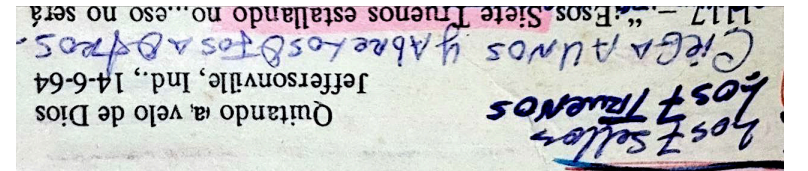 Los 7 Sellos
Los 7 TRUENOS
Quitando velo de Dios
Jeffersonville, Ind., 14-6-64
CiEGA A UNOS y AbRE LOS OJOS A OTROS.
“¡Esos Siete Truenos estallando no...eso no será